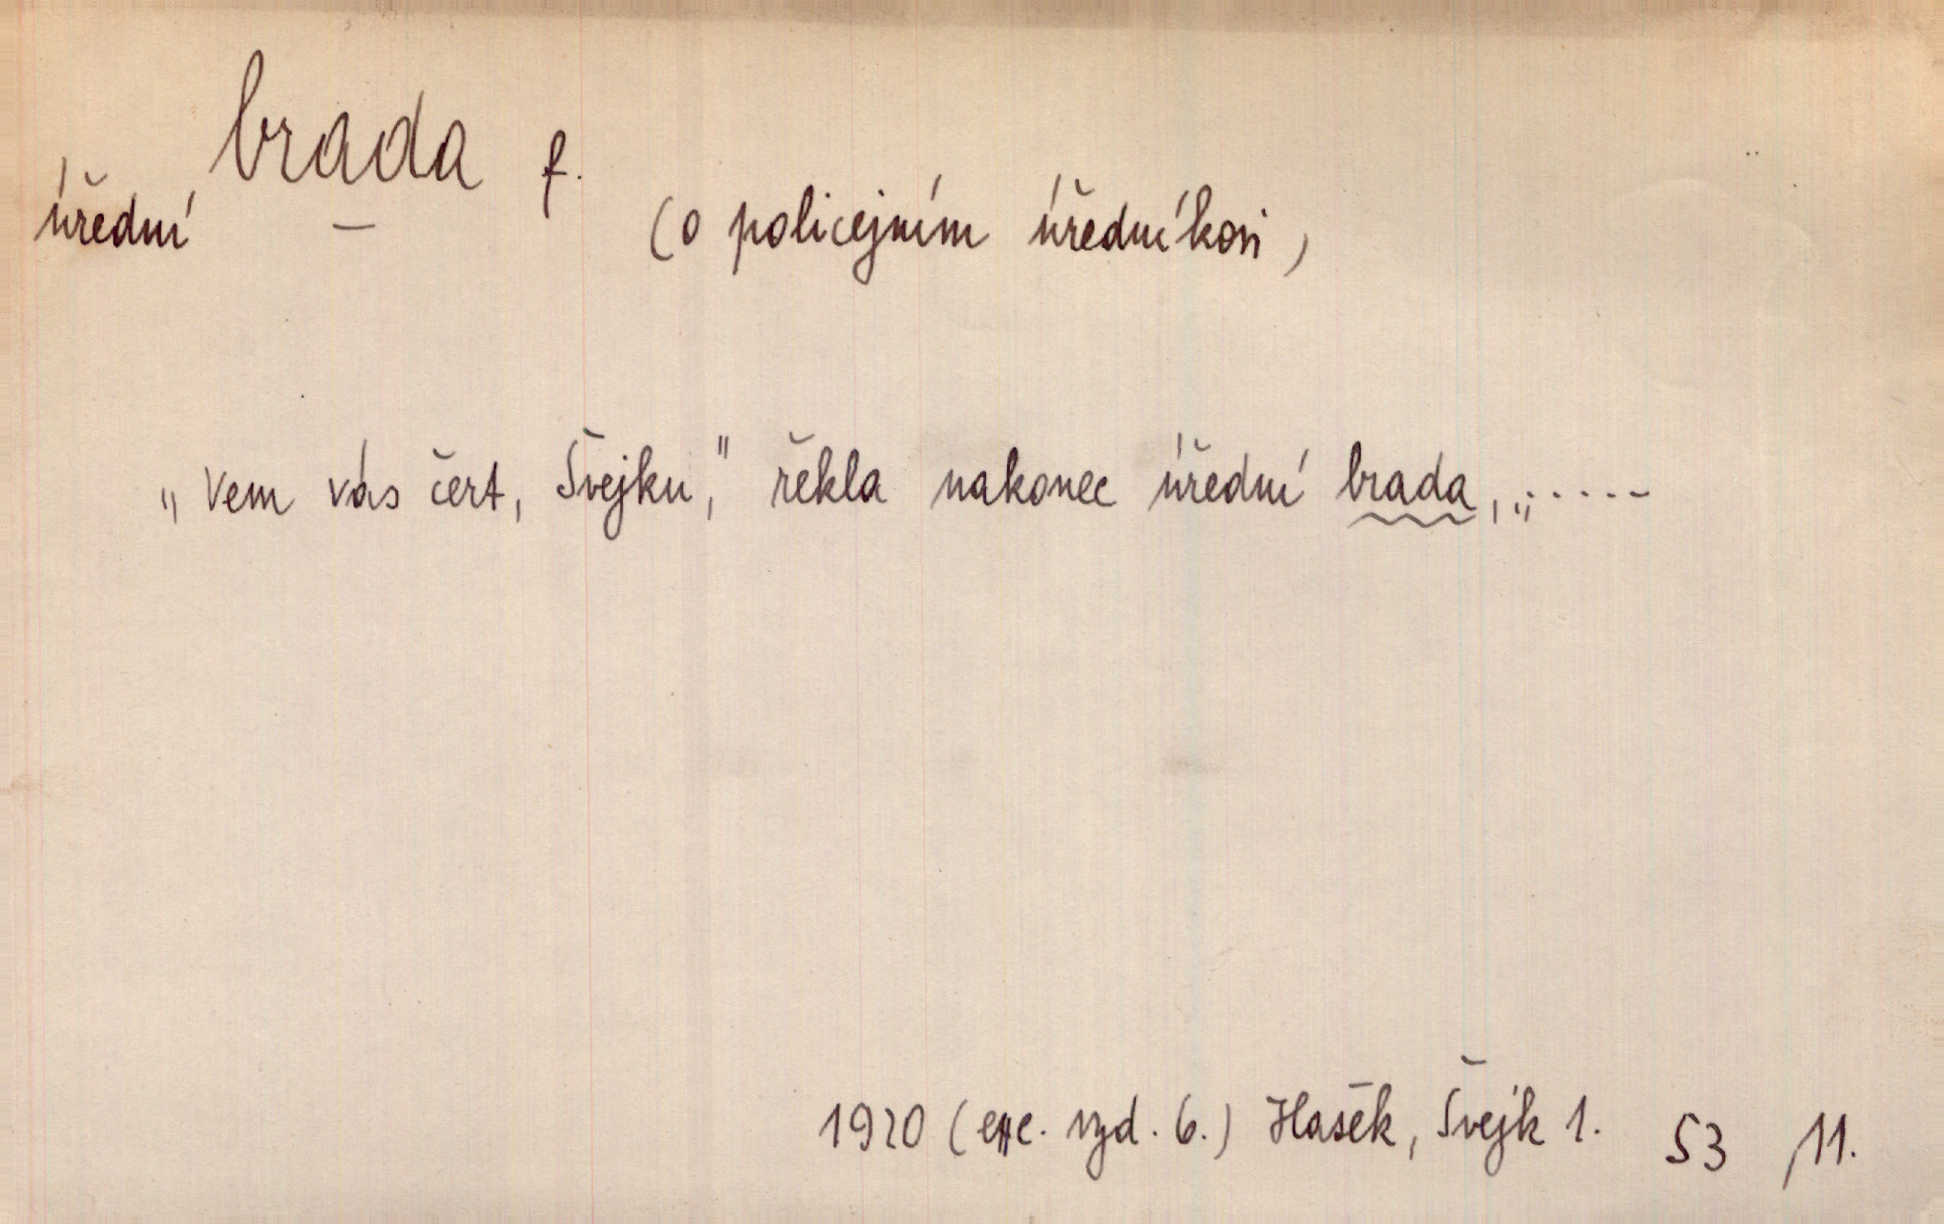 brada f.
úřední — (o policejním úředníkovi)
„Vem vás čert, Švejku," řekla nakonec úřední brada, „.....
1920 (exc. vyd. 6.) Hašek, Švejk 1. 53 /11.